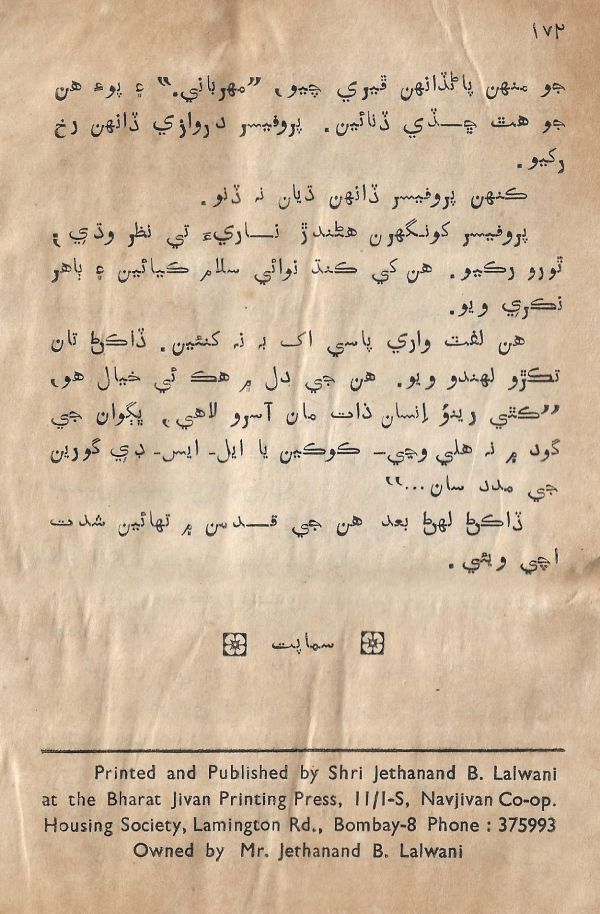 ١٧٢
جو منهن پاڻڏانهن ڦيري چيو، ”مهرباني.“ ۽ پوءِ هن
جو هٿ ڇــڏي ڏنائين. پروفيسر دروازي ڏانهن رخ
رکيو.
ڪنهن پروفيسر ڏانهن ڌيان نہ ڏنو.
پروفيسر کونگهرن هڻندڙ نــاريءَ تي نظر وڌي ۽
ٿورو رڪيو. هن کي ڪنڌ نوائي سلام ڪيائين ۽ ٻاهر
نڪري ويو.
هن لفٽ واري پاسي اک بہ نہ کنئين. ڏاڪڻ تان
تڪڙو لهندو ويو. هن جي دل ۾ هڪ ئي خيال هو،
”ڪٿي رينوُ اِنسان ذات مان آسرو لاهي، ڀڳوان جي
گود ۾ نہ هلي وڃي- ڪوڪين يا ايل- ايس- ڊي گورين
جي مدد سان...“
ڏاڪڻ لهڻ بعد هن جي قــدمن ۾ تهائين شدت
اچي ويئي.
سماپت
Printed and Published by Shri Jethanand B. Lalwani
at the Bharat Jivan Printing Press, 11/1-S, Navjivan Co-op.
Housing Society, Lamington Rd., Bombay-8 Phone : 375993
Owned by Mr. Jethanand B. Lalwani